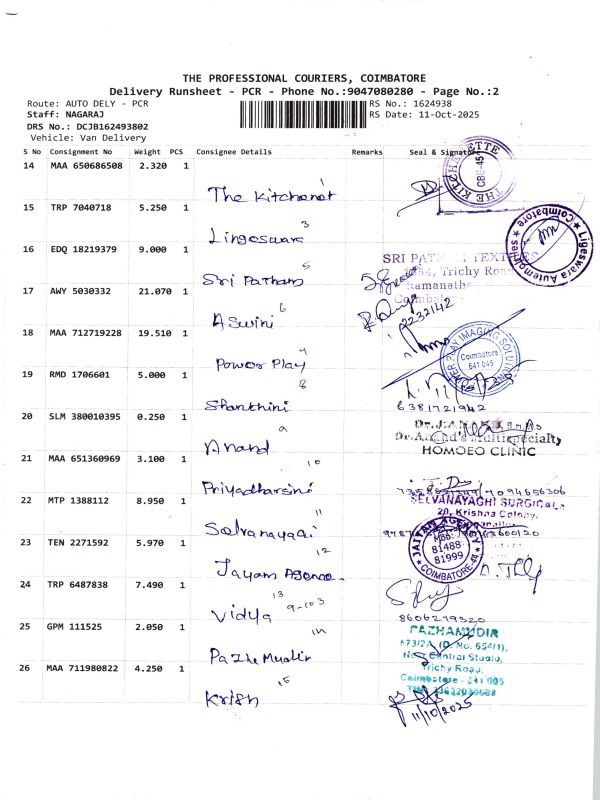 THE PROFESSIONAL COURIERS, COIMBATORE
Delivery Runsheet - PCR - Phone No.:9047080280 - Page No.:2
Route: AUTO DELY - PCR
RS No.: 1624938
Staff: NAGARAJ
RS Date: 11-Oct-2025
DRS No.: DCJB162493802
Vehicle: Van Delivery
S No Consignment No Weight PCS Consignee Details Remarks Seal & Signature
14 MAA 650686508 2.320 1
The Kitchenet
THE KITCHENETTE CBE-45
15 TRP 7040718 5.250 1
3
Lingeswara
Ligeswara Automotives Coimbatore
16 EDQ 18219379 9.000 1
5
Sri Patham
SRI PATHAM TEXTILES
1054, Trichy Road
Ramanatha
17 AWY 5030332 21.070 1
6
Aswini
2232142
18 MAA 712719228 19.510 1
Power Play
POWER PLAY IMAGING SOLUTIONS
Coimbatore
641 045
19 RMD 1706601 5.000 1
8
Shanthini
6381721942
20 SLM 380010395 0.250 1
9
Anand
Dr. Anand's Multispecialty
HOMOEO CLINIC
21 MAA 651360969 3.100 1
10
Priyadharsini
7094656306
22 MTP 1388112 8.950 1
11
Selvanayagi
SELVANAYAGHI SURGICALS
20, Krishna Colony,
23 TEN 2271592 5.970 1
12
Jayam Agence
JAYAM AGENCY
Mob:
81488
81999
COIMBATORE-44
24 TRP 6487838 7.490 1
13
Vidya 9-103
8606279320
25 GPM 111525 2.050 1
14
Pazhe Mudir
PAZHAMUDIR
573/2A, (D. No. 654/1),
Near Central Studio,
Trichy Road,
Coimbatore - 641 005
26 MAA 711980822 4.250 1
15
Krish
11/10/2025